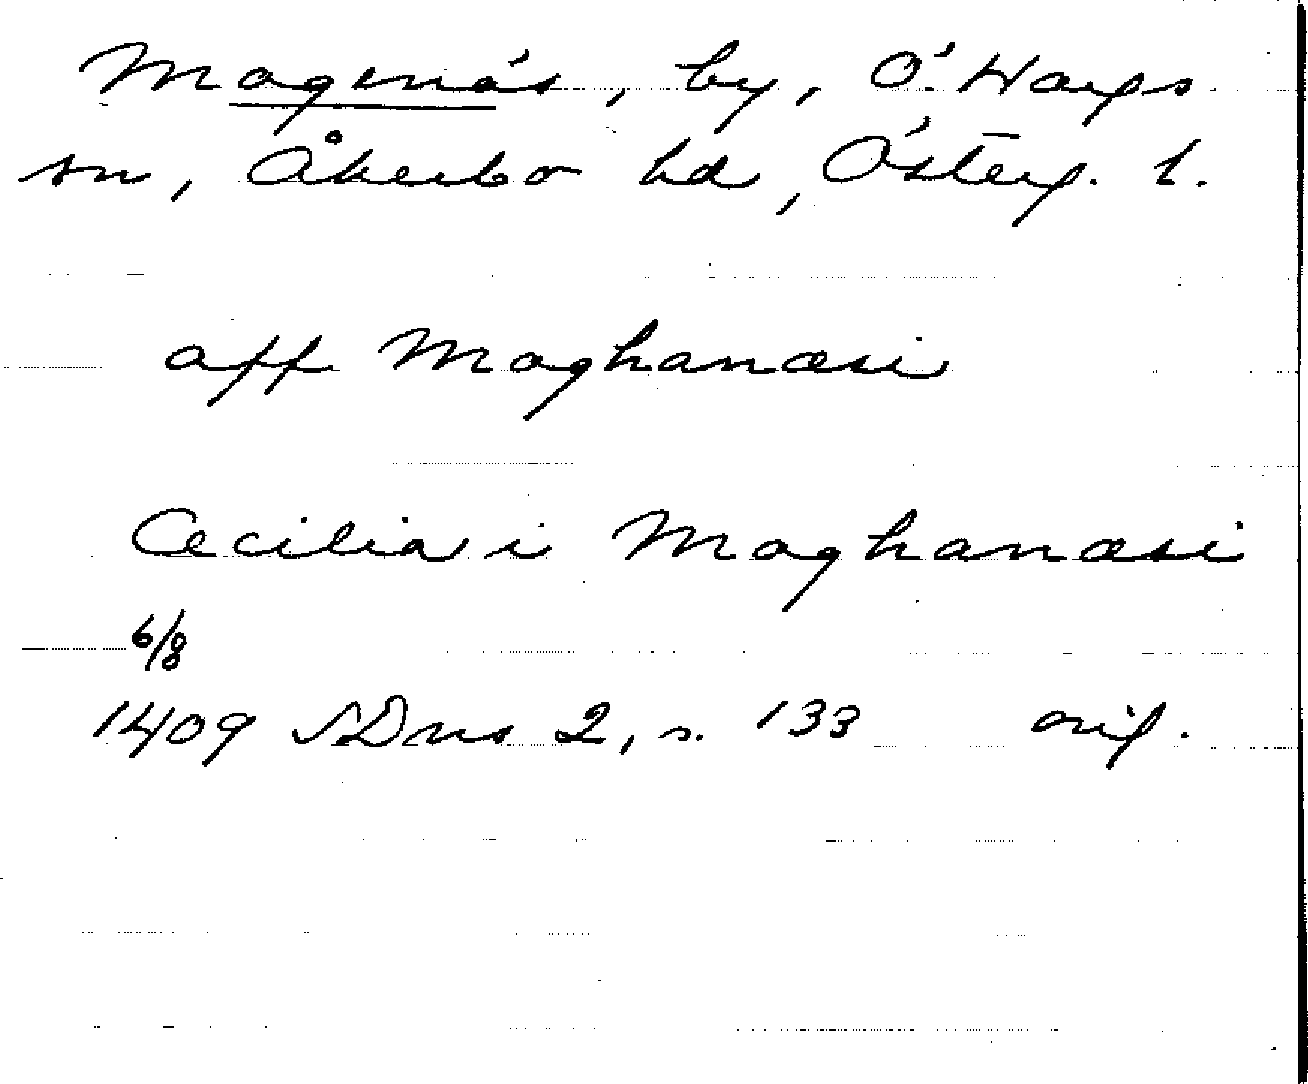 Magnnäs, by, Ö. Hargs
sn, Åkerbo hd, Österg. l.
aff Maghanæsi
Cecilia i Maghanæsi
6/8
1409 SDns 2, s. 133 orig.